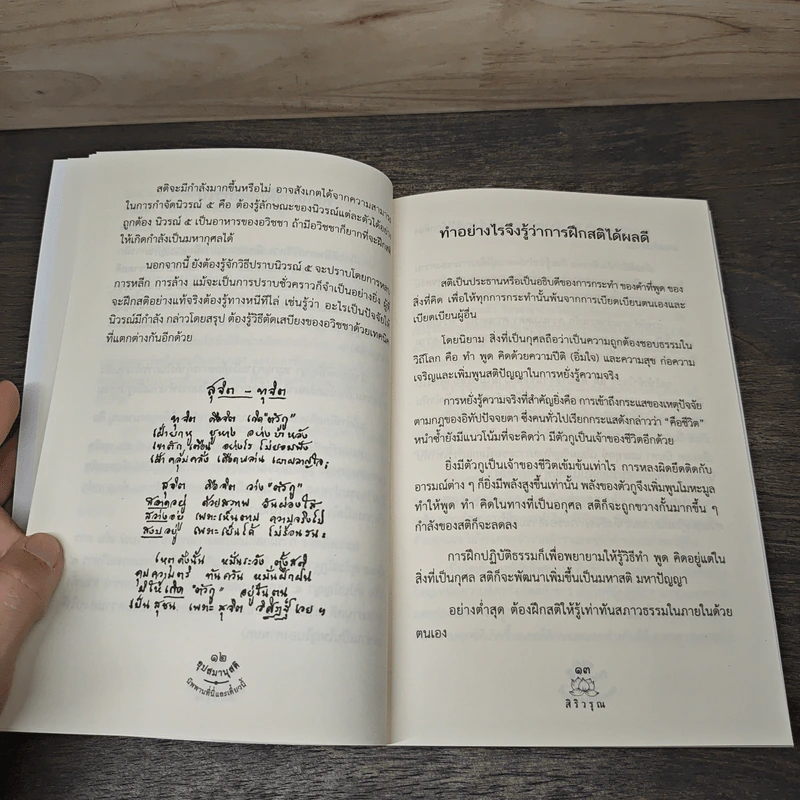 สติจะมีกำลังมากขึ้นหรือไม่ อาจสังเกตได้จากความสามารถ
ในการกำจัดนิวรณ์ ๕ คือ ต้องรู้ลักษณะของนิวรณ์แต่ละตัวได้อย่าง
ถูกต้อง นิวรณ์ ๕ เป็นอาหารของอวิชชา ถ้ามีอวิชชาก็ยากที่จะฝึก
ให้เกิดกำลังเป็นมหากุศลได้
นอกจากนี้ ยังต้องรู้จักวิธีปราบนิวรณ์ ๕ จะปราบโดยการ
การหลีก การล้าง แม้จะเป็นการปราบชั่วคราวก็จำเป็นอย่างยิ่ง
จะฝึกสติอย่างแท้จริงต้องรู้ทางหนีทีไล่ เช่นรู้ว่า อะไรเป็นปัจจัยให้
นิวรณ์มีกำลัง กล่าวโดยสรุป ต้องรู้วิธีตัดเสบียงของอวิชชาด้วยเทคนิค
ที่แตกต่างกันอีกด้วย
สุจิต - ทุจิต
ทุจิต คือจิต เกิด "ตัวกู"
เฝ้า ชูหาง อย่างบ้าหลัง
ใครตัก เตือน อย่างไร ไม่ยอมฟัง
เฝ้าคลุ้มคลั่ง เดือดพล่าน เผาผลาญใจ ฯ
สุจิต คือจิต ว่าง "ตัวกู"
สะอาดอยู่ ด้วยสภาพ อันผ่องใส
สว่างอยู่ เพราะเห็นตาม ความจริงไป
สงบอยู่ เพราะเป็นได้ ไม่ร้อนรน ฯ
เหตุดังนั้น หมั่นระวัง ตั้งสติ
คุม ทันควัน หมั่นฝึกฝน
มิให้เกิด "ตัวกู" อยู่ในตน
เป็น สุชน เพราะ สุจิต วิศิษฏ์ เอย ฯ
๑๒
อุปสมานุสติ
นิพพานที่นี่และเดี๋ยวนี้
ทำอย่างไรจึงรู้ว่าการฝึกสติได้ผลดี
สติเป็นประธานหรือเป็นอธิบดีของการกระทำ ของคำที่พูด ของ
สิ่งที่คิด เพื่อให้ทุกการกระทำนั้นพ้นจากการเบียดเบียนตนเองและ
เบียดเบียนผู้อื่น
โดยนิยาม สิ่งที่เป็นกุศลถือว่าเป็นความถูกต้องชอบธรรมใน
วิถีโลก คือ ทำ พูด คิดด้วยความปีติ (อิ่มใจ) และความสุข ก่อความ
เจริญและเพิ่มพูนสติปัญญาในการหยั่งรู้ความจริง
การหยั่งรู้ความจริงที่สำคัญยิ่งคือ การเข้าถึงกระแสของเหตุปัจจัย
ตามกฎของอิทัปปัจจยตา ซึ่งคนทั่วไปเรียกกระแสดังกล่าวว่า "คือชีวิต"
หนำซ้ำยังมีแนวโน้มที่จะคิดว่า มีตัวกูเป็นเจ้าของชีวิตอีกด้วย
ยิ่งมีตัวกูเป็นเจ้าของชีวิตเข้มข้นเท่าไร การหลงผิดยึดติดกับ
อารมณ์ต่าง ๆ ก็ยิ่งมีพลังสูงขึ้นเท่านั้น พลังของตัวกูจึงเพิ่มพูนโมหะมูล
ทำให้พูด ทำ คิดในทางที่เป็นอกุศล สติก็จะถูกขวางกั้นมากขึ้น ๆ
กำลังของสติก็จะลดลง
การฝึกปฏิบัติธรรมก็เพื่อพยายามให้รู้วิธีทำ พูด คิดอยู่แต่ใน
สิ่งที่เป็นกุศล สติก็จะพัฒนาเพิ่มขึ้นเป็นมหาสติ มหาปัญญา
อย่างต่ำสุด ต้องฝึกสติให้รู้เท่าทันสภาวธรรมในภายในด้วย
ตนเอง
๑๓
สิริวรุณ